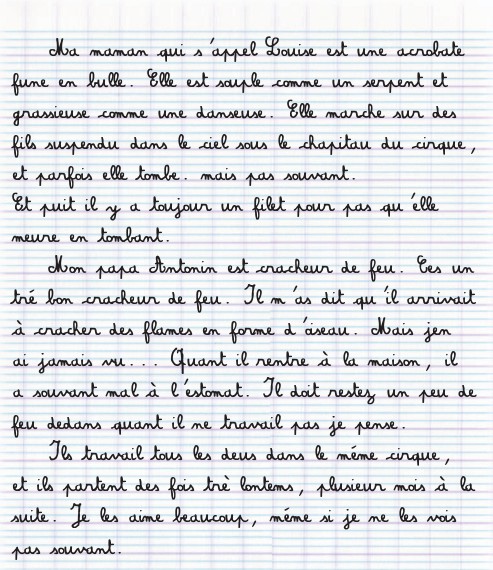 Ma maman qui s'appel Louise est une acrobate
fune en bulle. Elle est souple comme un serpent et
grassieuse comme une danseuse. Elle marche sur des
fils suspendu dans le ciel sous le chapitau du cirque,
et parfois elle tombe. mais pas souvant.
Et puit il y a toujour un filet pour pas qu'elle
meure en tombant.
Mon papa Antonin est cracheur de feu. Ces un
tré bon cracheur de feu. Il m'as dit qu'il arrivait
à cracher des flames en forme d'aseau. Mais jen
ai jamais vu... Quant il rentre à la maison, il
a souvant mal à l'estomat. Il doit restez un peu de
feu dedans quant il ne travail pas je pense.
Ils travail tous les deus dans le même cirque,
et ils partent des fois trè lontems, plusieur mois à la
suite. Je les aime beaucoup, même si je ne les vois
pas souvant.